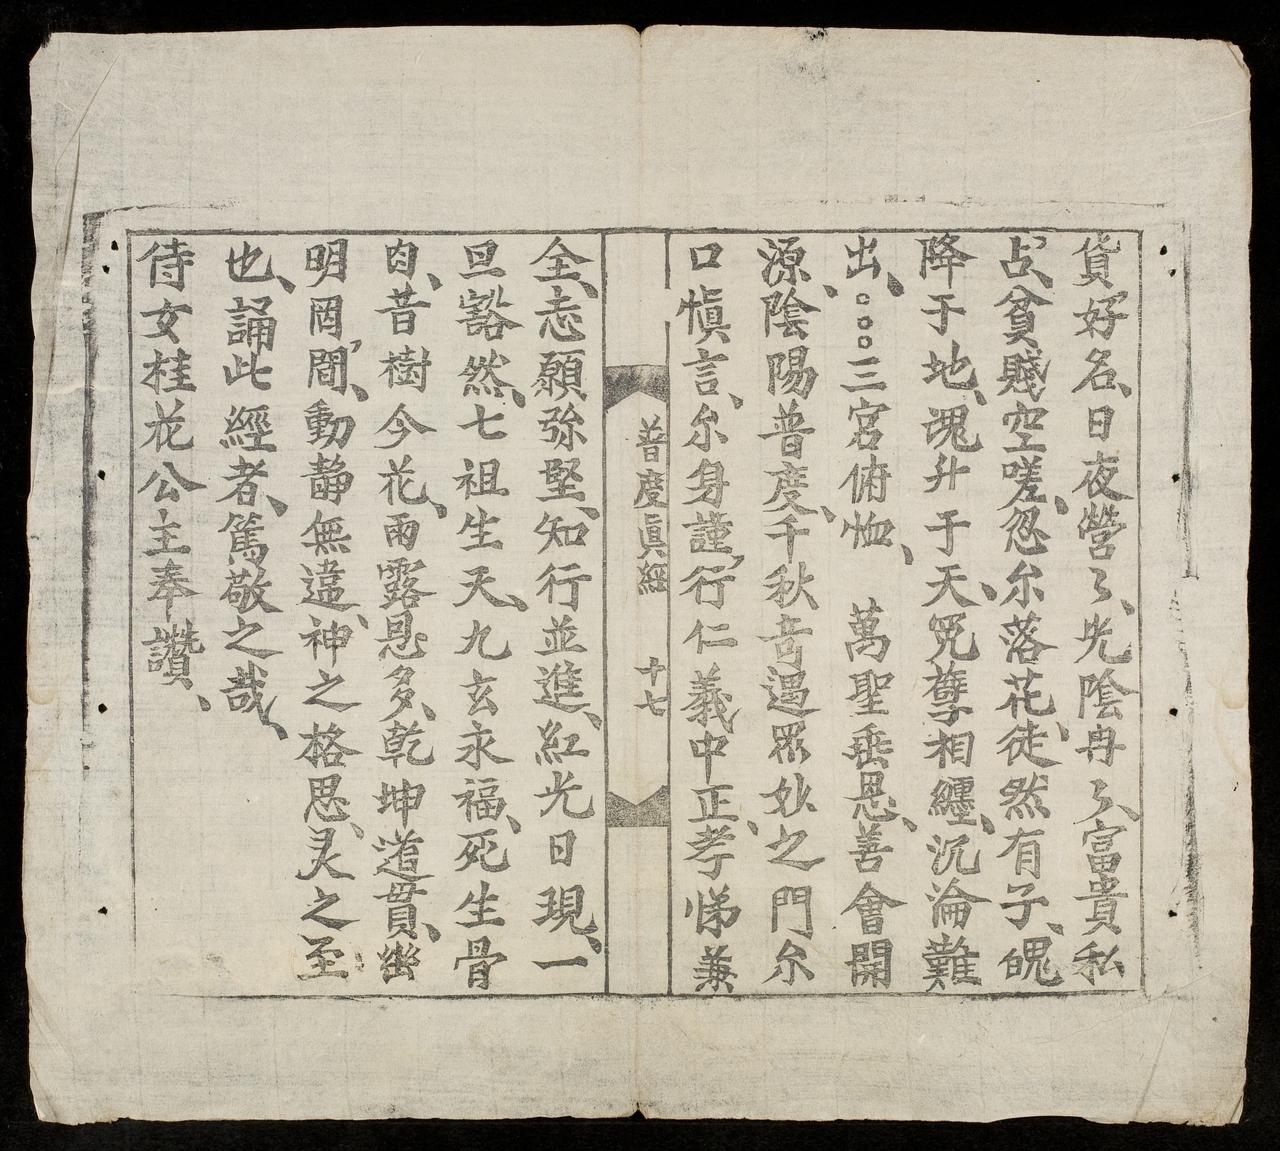 貨好名、日夜營〻、光陰冉〻、富貴私
占、貧賤空嗟、忽尔落花、徒然有子、魄
降于地、魂升于天、冤孽相纏、沉淪難
出、。。。三宮俯恤、 萬聖垂恩、善會開
源、陰陽普度、千秋奇遇眾妙之門尔
口慎言、尔身謹行、仁義中正、孝悌兼
普度真經 十七
全、志願弥堅、知行並進、紅光日現、一
旦豁然、七祖生天、九玄永福、死生骨
肉、昔樹今花、雨露恩多、乾坤道貫、幽
明罔間、動靜無違、神之格思、灵之至
也、誦此經者、篤敬之哉、
侍女桂花公主奉讚、